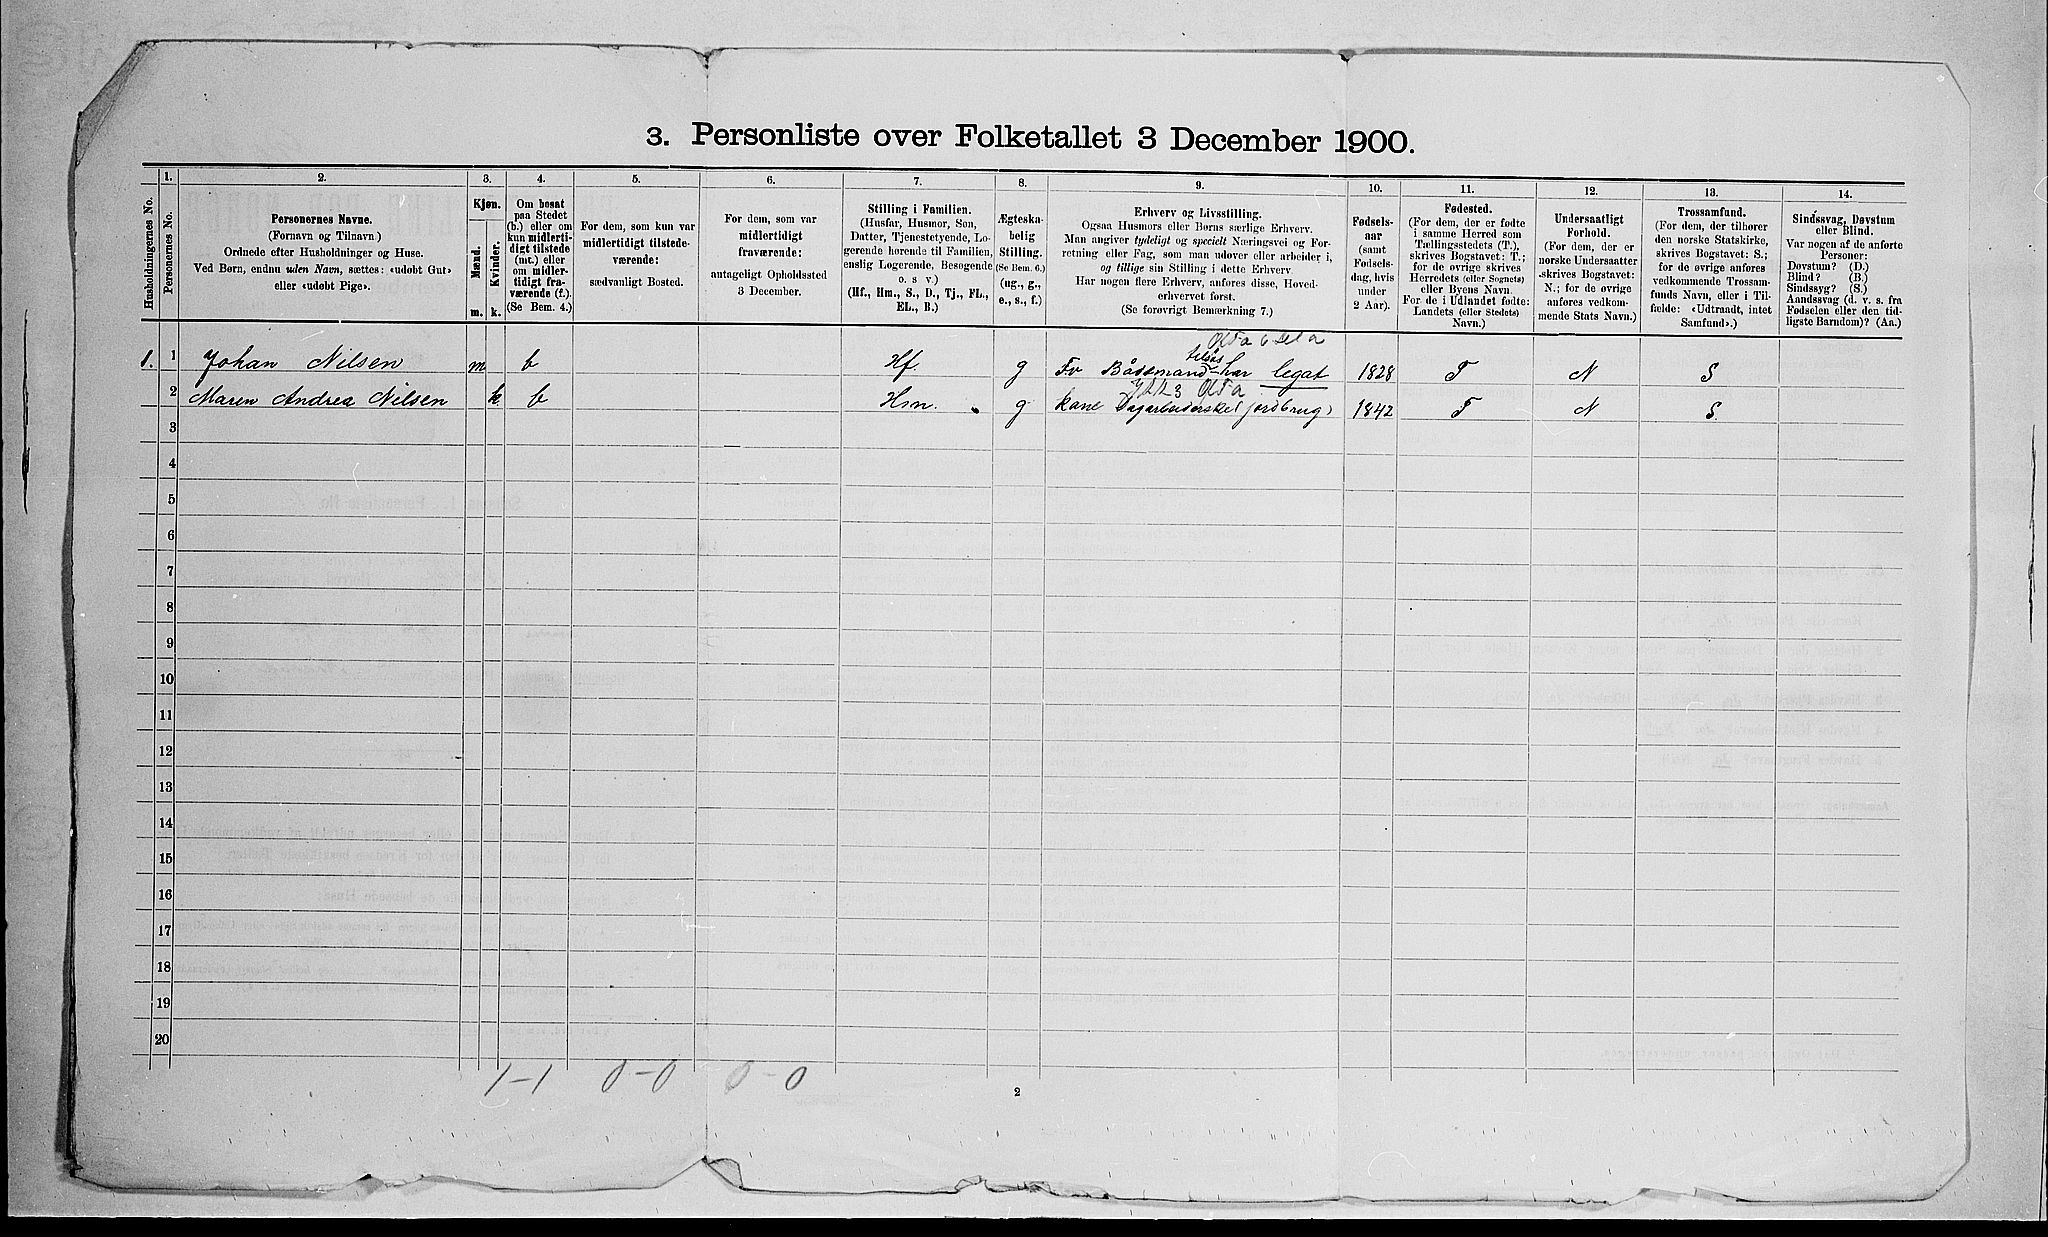 3. Personliste over Folketallet 3 December 1900.
Husholdningernes No.
1.
Personernes No.
2.
Personernes Navne.
(Fornavn og Tilnavn)
Ordnede efter Husholdninger og Huse.
Ved Børn, endnu uden Navn, sættes: «udøbt Gut»
eller «udøbt Pige».
3.
Kjøn.
Mænd.
Kvinder.
m. k.
4.
Om bosat
paa Stedet
(b.) eller om
kun midlerti-
digt tilstede
(mt.) eller
om midler-
tidigt fra-
værende (f.).
(Se Bem. 4.)
5.
For dem, som kun var
midlertidigt tilstede-
værende:
sædvanligt Bosted.
6.
For dem, som var
midlertidigt
fraværende:
antageligt Opholdssted
3 December.
7.
Stilling i Familien.
(Husfar, Husmor, Søn,
Datter, Tjenestetyende, Lo-
gerende hørende til Familien,
enslig Logerende, Besøgende
o. s v.)
(Hf., Hm., S., D., Tj., FL.,
EL., B.)
8.
Ægteska-
belig
Stilling.
(Se Bem. 6.)
(ug., g.,
e., s., f.)
9.
Erhverv og Livsstilling.
Ogsaa Husmors eller Børns særlige Erhverv.
Man angiver tydeligt og specielt Næringsvei og For-
retning eller Fag, som man udøver eller arbeider i,
og tillige sin Stilling i dette Erhverv.
Har nogen flere Erhverv, anføres disse, Hoved-
erhvervet først.
(Se forøvrigt Bemærkning 7.)
10.
Fødsels-
aar
(samt
Fødsels-
dag, hvis
under
2 Aar).
11.
Fødested.
(For dem, der er fødte
i samme Herred som
Tællingsstedets (T.),
skrives Bogstavet: T.;
for de øvrige skrives
Herredets (eller Sognets)
eller Byens Navn.
For de i Udlandet fødte:
Landets (eller Stedets)
Navn.)
12.
Undersaatligt
Forhold.
(For dem, der er
norske Undersaatter
skrives Bogstavet:
N.; for de øvrige
anføres vedkom-
mende Stats Navn.)
13.
Trossamfund.
(For dem, der tilhører
den norske Statskirke,
skrives Bogstavet: S.;
for de øvrige anføres
vedkommende Trossam-
funds Navn, eller i Til-
fælde: «Udtraadt, intet
Samfund».)
14.
Sindssvag, Døvstum
eller Blind.
Var nogen af de anførte
Personer:
Døvstum? (D.)
Blind? (B.)
Sindssyg? (S.)
Aandssvag (d. v. s. fra
Fødselen eller den tid-
ligste Barndom)? (Aa.)
1. 1 Johan Nilsen m b Hf. g Fv Bådsmand har legat 1828 T N S
2 Maren Andrea Nilsen k. b Hm. g kone Dagarbeiderske (jordbrug) 1842 T N S.
3
4
5
6
7
8
9
10
11
12
13
14
15
16
17
18
19
20
1-1 0-0 0-0
2